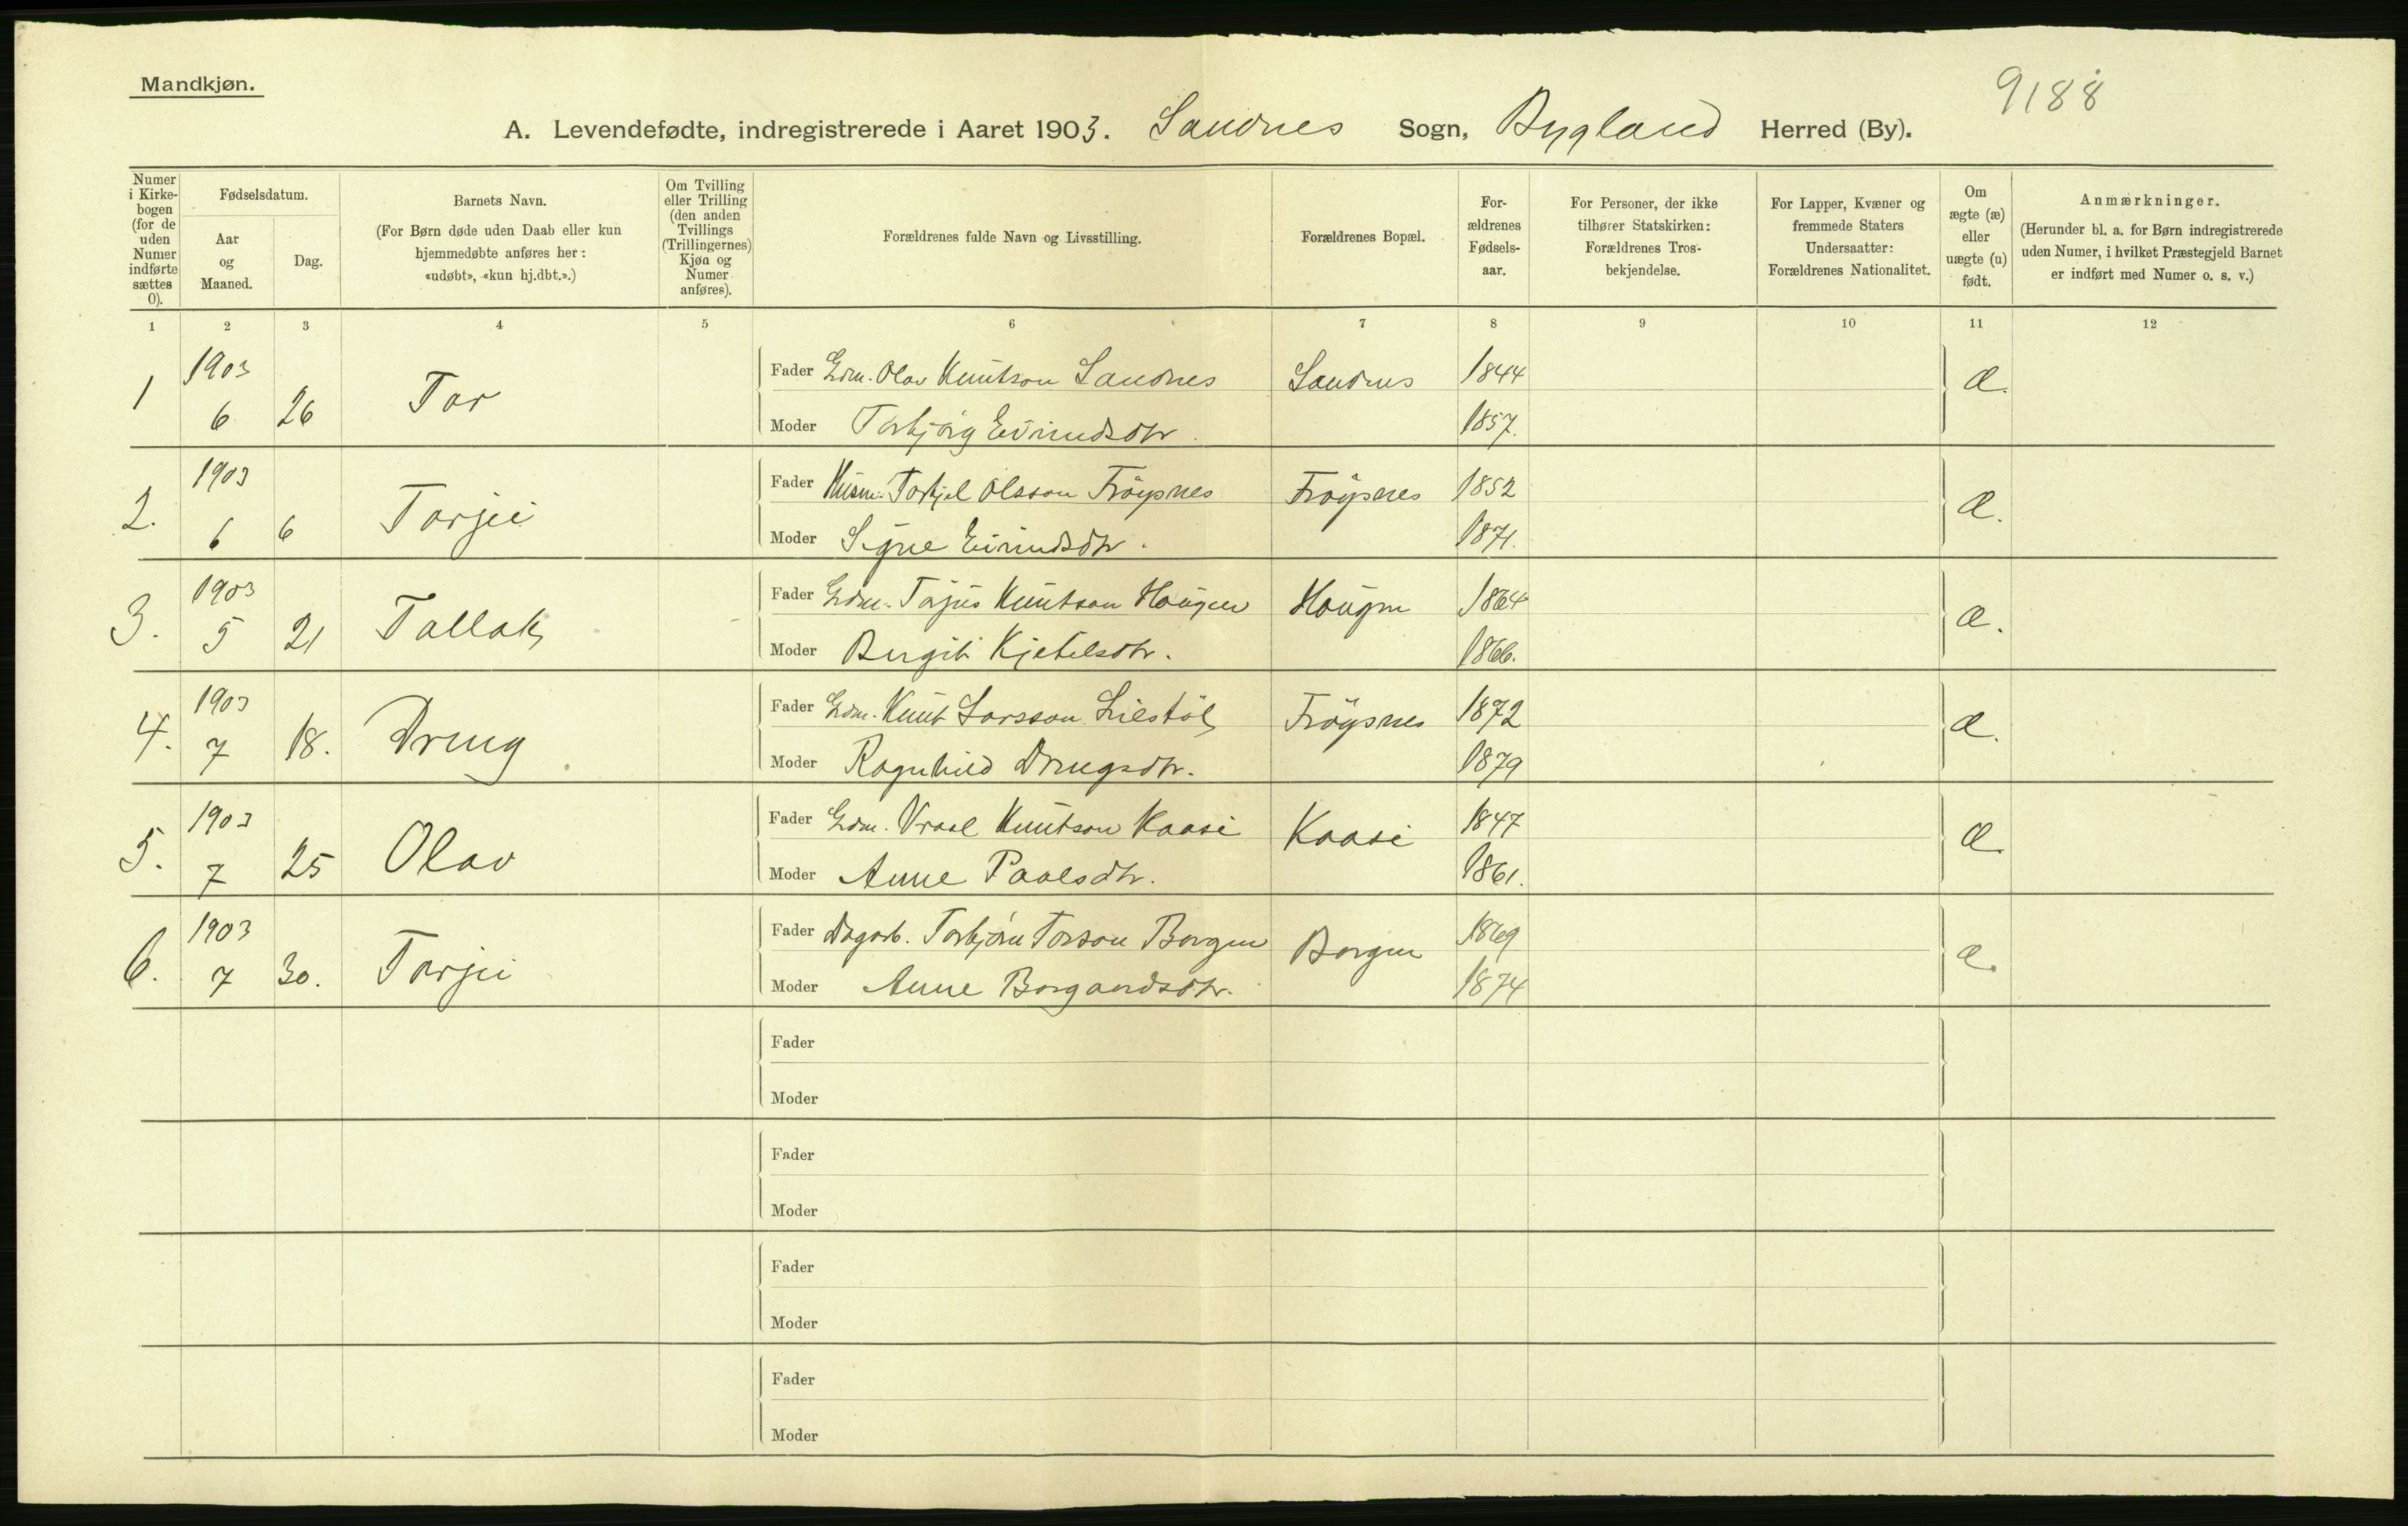 Mandkjøn.
9188
A. Levendefødte, indregistrerede i Aaret 1903. Sandnes Sogn, Bygland Herred (By).
Numer i Kirkebogen (for de uden Numer indførte sættes 0).
Fødselsdatum.
Aar og Maaned.
Dag.
Barnets Navn.
(For Børn døde uden Daab eller kun hjemmedøbte anføres her: «udøbt», «kun hj.dbt.».)
Om Tvilling eller Trilling (den anden Tvillings (Trillingernes) Kjøn og Numer anføres).
Forældrenes fulde Navn og Livsstilling.
Forældrenes Bopæl.
Forældrenes Fødselsaar.
For Personer, der ikke tilhører Statskirken: Forældrenes Trosbekjendelse.
For Lapper, Kvæner og fremmede Staters Undersaatter: Forældrenes Nationalitet.
Om ægte (æ) eller uægte (u) født.
Anmærkninger.
(Herunder bl. a. for Børn indregistrerede uden Numer, i hvilket Præstegjeld Barnet er indført med Numer o. s. v.)
1 2 3 4 5 6 7 8 9 10 11 12
1 1903 6 26 Tor Fader Gdm. Olav Knutson Sandnes Sandnes 1844 æ.
Moder Torbjørg Eivindsdtr. 1857.
2. 1903 6 6 Torjei Fader Husm. Torkjel Olsson Frøysnes Frøysnes 1852 æ.
Moder Signe Eivindsdtr. 1871.
3. 1903 5 21 Tallak Fader Gdm. Torjus Knutson Haugen Haugen 1864 æ.
Moder Birgit Kjetilsdtr. 1866.
4. 1903 7 18. Dreng Fader Gdm. Knut Larsson Liestøl Frøysnes 1872 æ.
Moder Ragnhild Drengsdtr. 1879
5. 1903 7 25 Olav Fader Gdm. Vraal Knutson Kaasi Kaasi 1847 æ.
Moder Anne Paalsdtr. 1861.
6. 1903 7 30. Torjei Fader Dagarb. Torbjørn Torson Borgen Borgen 1869 æ.
Moder Anne Borgandsdtr. 1874
Fader
Moder
Fader
Moder
Fader
Moder
Fader
Moder